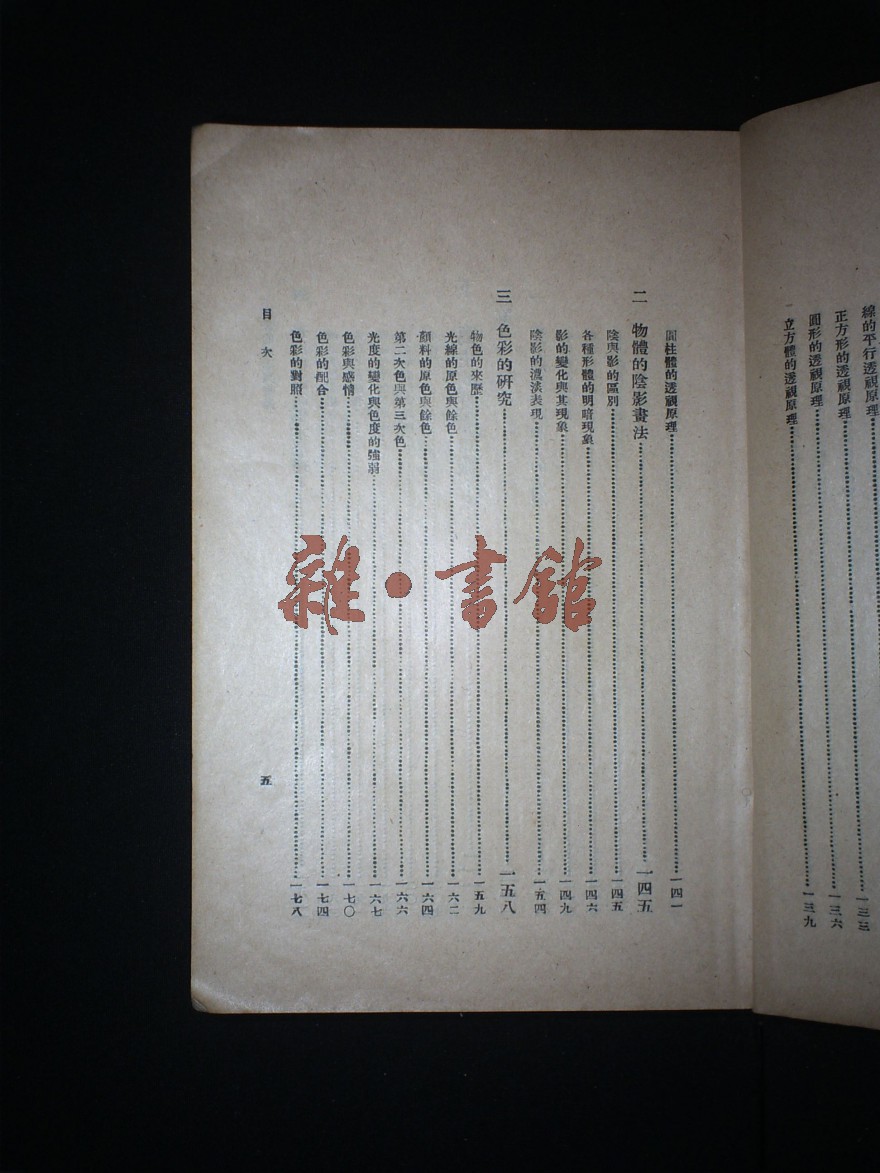 線的平行透視原理 一三三
正方形的透視原理 一三六
圓形的透視原理 一三九
立方體的透視原理
圓柱體的透視原理 一四一
二 物體的陰影畫法 一四五
陰與影的區別 一四五
各種形體的明暗現象 一四六
影的變化與其現象 一四九
陰影的濃淡表現 一五四
三 色彩的研究 一五八
物色的來歷 一五九
光線的原色與餘色 一六二
顏料的原色與餘色 一六四
第二次色與第三次色 一六六
光度的變化與色度的強弱 一六七
色彩與感情 一七〇
色彩的配合 一七四
色彩的對照 一七八
目次
五
雜·書館